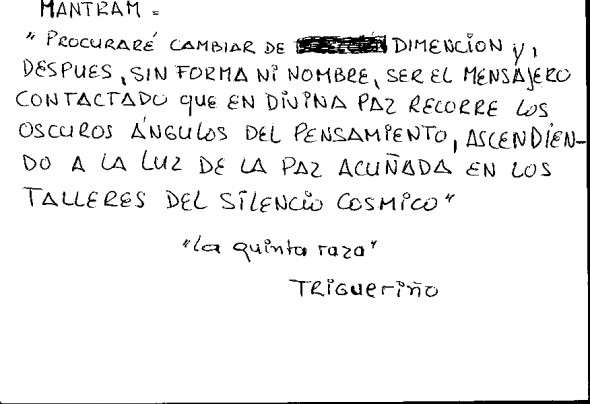 MANTRAM =
"PROCURARÉ CAMBIAR DE DIMENCION y,
DESPUES, SIN FORMA NI NOMBRE, SER EL MENSAJERO
CONTACTADO QUE EN DIVINA PAZ RECORRE LOS
OSCUROS ÁNGULOS DEL PENSAMIENTO, ASCENDIEN-
DO A LA LUZ DE LA PAZ ACUÑADA EN LOS
TALLERES DEL SILENCIO COSMICO"
"La quinta raza"
TRIGUERIÑO